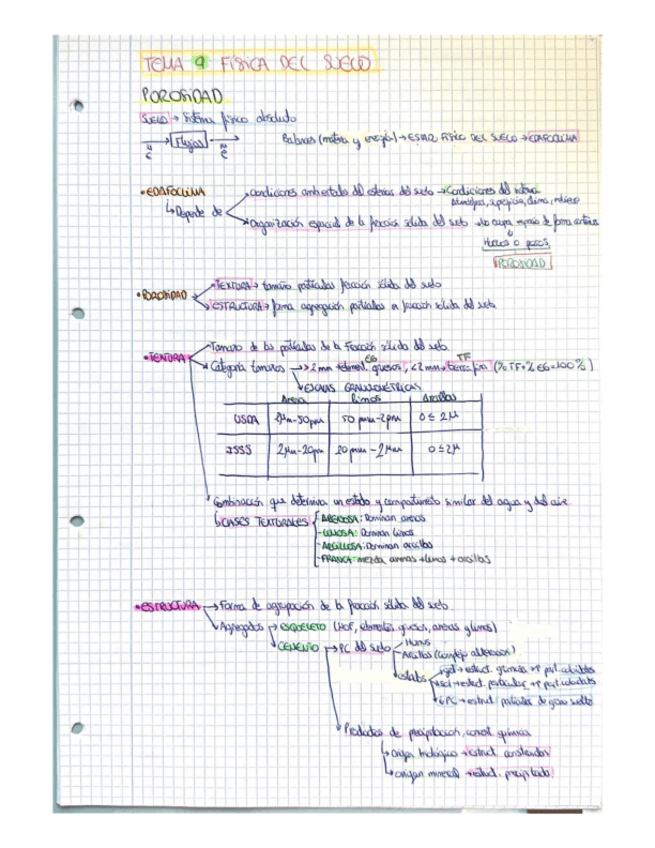 TEMA 9 FÍSICA DEL SUELO
POROSIDAD
SUELO → Sistema físico abierto
→ Flujos → Balances (materia y energía) → ESTADO FÍSICO DEL SUELO → EDAFOCLIMA
• EDAFOCLIMA → condiciones ambientales del interior del suelo → Condiciones del
Atmósfera, superficie, clima, relieve
↳ Depende de
Organización espacial de la fracción sólida del suelo → No ocupa espacio de forma
Huecos o poros
POROSIDAD
• POROSIDAD → TEXTURA → tamaño partículas fracción sólida del suelo
→ ESTRUCTURA → forma agregación partículas en fracción sólida del suelo
Tamaño de las partículas de la Fracción sólida del suelo
• TEXTURA → Categoría tamaños → >2mm gruesos, <2mm → tierra fina (% TF + % EG = 100%)
EG TF
ESCALAS GRANULOMÉTRICAS
Arena Limos Arcillas
USDA 0 ≤ 2µ
ISSS 0 ≤ 2µ
Combinación que determina un estado y comportamiento similar del agua y del aire
↳ CLASES TEXTURALES - ARENOSA: Dominan arenas
- LIMOSA: Dominan limos
- ARCILLOSA: Dominan arcillas
- FRANCA: mezcla arenas + limos + arcillas
• ESTRUCTURA → Forma de agrupación de la fracción sólida del suelo
Agregados → ESQUELETO (HOF, gruesos, arenas y limos)
CEMENTO → PC del suelo → Humus
Arcillas (Complejo)
→ estruct.
→ estruct. particular
PC → estruct. particular de grano suelto
Productos de precipitación, químicas
↳ origen biológico → estruct. construidas
↳ origen mineral → estruct. precipitada